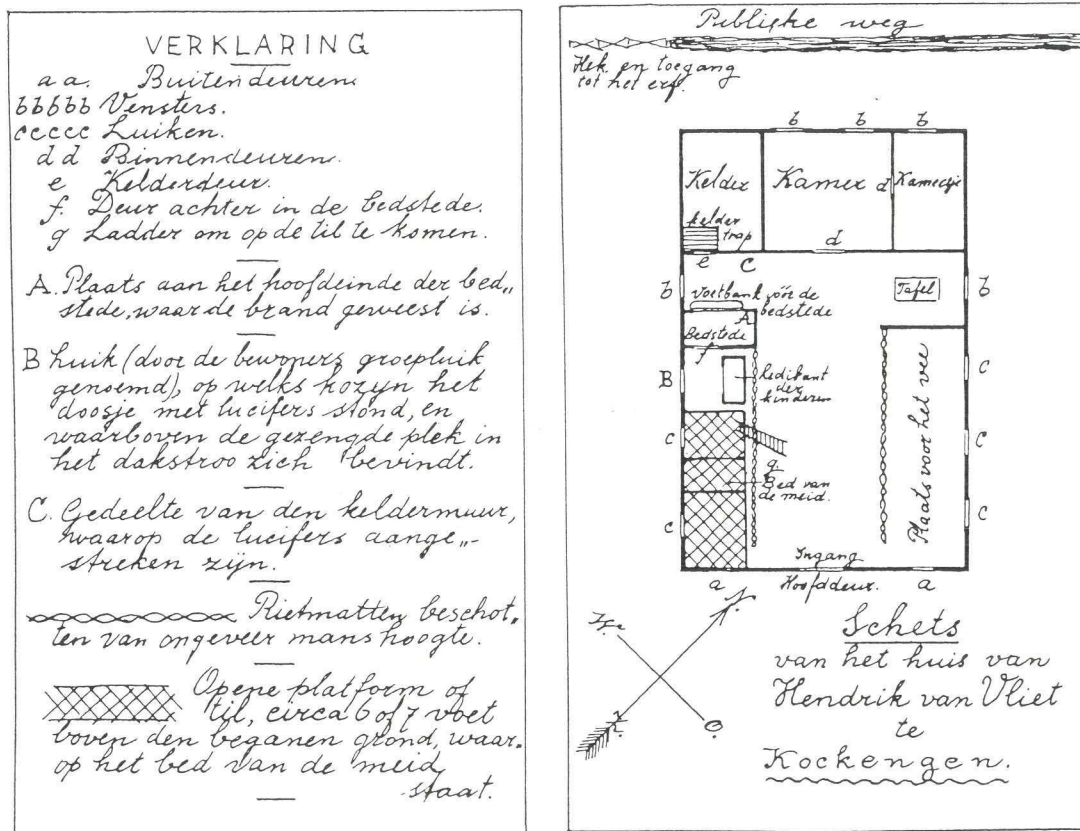 VERKLARING
a a. Buitendeuren.
bbbbb Vensters.
ccccc Luiken.
d d Binnendeuren.
e Kelderdeur.
f. Deur achter in de bedstede.
g Ladder om op de til te komen.
A. Plaats aan het hoofdeinde der bed„
stede, waar de brand geweest is.
B Luik (door de bewoners groepluik
genoemd), op welks kozyn het
doosje met lucifers stond, en
waarboven de gezengde plek in
het dakstroo zich bevindt.
C. Gedeelte van den keldermuur,
waarop de lucifers aange„-
streken zijn.
Rietmatten beschot„
ten van ongeveer manshoogte.
Opene platform of
til, circa 6 of 7 voet
boven den beganen grond, waar„
op het bed van de meid
staat.
Publieke weg
Hek en toegang
tot het erf.
b b b
Kelder Kamer d Kamertje
kelder
trap
d
e C
b voetbank vóór de Tafel b
A bedstede
Bedstede
f
B ledikant c
der
kinderen
Plaats voor het vee
c c
g.
Bed van
de meid.
c c
Ingang
a Hoofddeur. a
N
W
Z
O
Schets
van het huis van
Hendrik van Vliet
te
Kockengen.